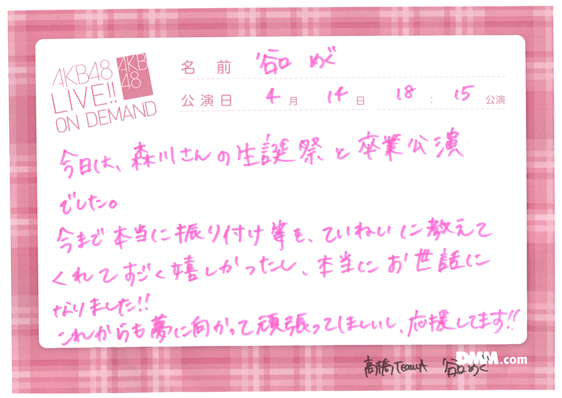 AKB48
LIVE!!
ON DEMAND
AKB
48
名前 谷口 めぐ
公演日 4月 14日 18:15 公演
今日は、森川さんの生誕祭と卒業公演
でした。
今まで本当に振り付け等を、ていねいに教えて
くれてすごく嬉しかったし、本当にお世話に
なりました!!
これからも夢に向かって頑張ってほしいし、応援してます!!
高橋TeamA 谷口めぐ
DMM.com